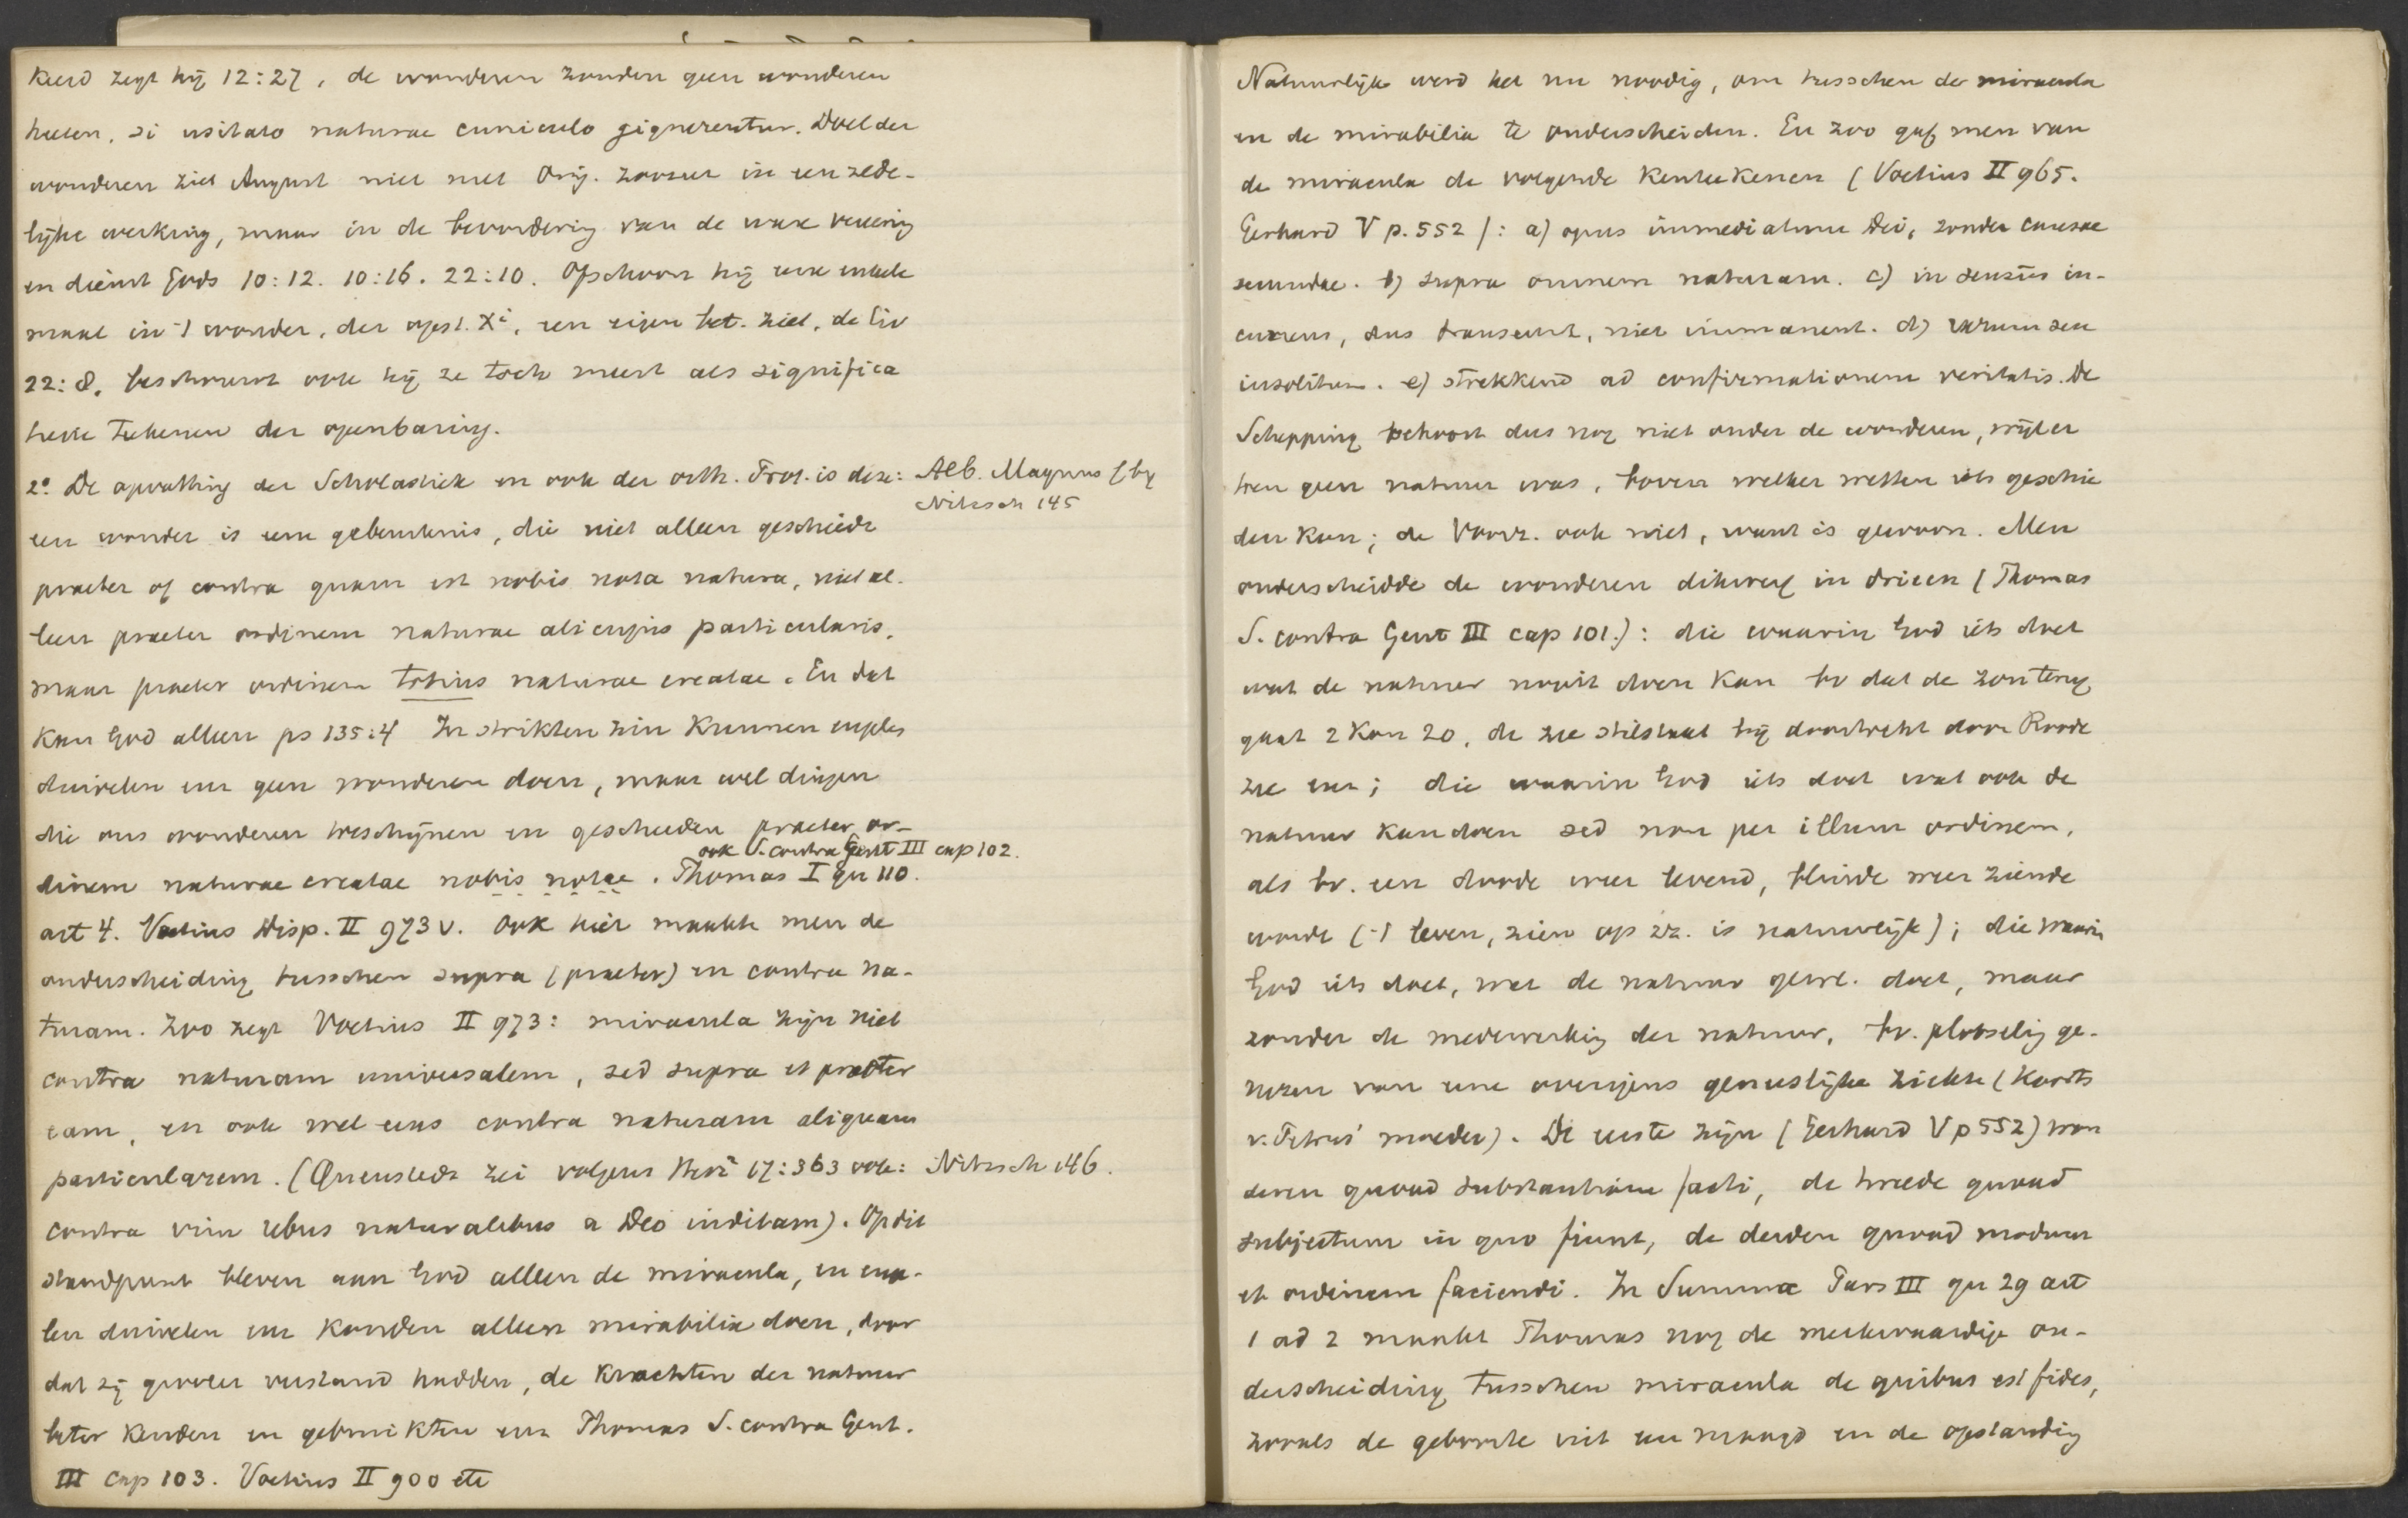 keerd zegt hij 12:27, de wonderen zouden geen wonderen
heeten, si usitato naturae curriculo gignerentur. Doel der
wonderen ziet August niet met Orig. zoozeer in een zede-
lijke werking, maar in de bevordering van de ware vereering
en dienst Gods 10:12. 10:16. 22:10. Ofschoon hij een enkele
maal in 't wonder, der opst. Xi, een eigen bet. ziet, de Civ
22:8, beschouwt ook hij ze toch meest als significa
tieve teekenen der openbaring.
2° De opvatting der Scholastiek en ook der orth. Prot. is deze: Alb. Magnus (by
Nitzsch 145
een wonder is eene gebeurtenis, die niet alleen geschiedt
praeter of contra quam est nobis nota natura, niet al-
leen praeter ordinem naturae alicujus particularis,
maar praeter ordinem totius naturae creatae. En dat
kan God alleen ps 135:4 In strikten zin kunnen engelen
duivelen enz geen wonderen doen, maar wel dingen
die ons wonderen toeschijnen en geschieden praeter or-
ook S. contra Gent III cap 102.
dinem naturae creatae nobis notae. Thomas I qu 110.
art 4. Voetius Disp. II 973 v. Ook hier maakte men de
onderscheiding tusschen supra (praeter) en contra na-
turam. Zoo zegt Voetius II 973: miracula zijn niet
contra naturam universalem, sed supra et praeter
eam, en ook wel eens contra naturam aliquam
particularem. (Quenstedt zei volgens Herz² 17:363 ook: Nitzsch 146.
contra vim rebus naturalibus a Deo inditam). Op dit
standpunt bleven aan God alleen de miracula, en enge-
len duivelen enz konden alleen mirabilia doen, door
dat zij grooter verstand hadden, de krachten der natuur
beter kenden en gebruikten enz Thomas S. contra Gent.
III cap 103. Voetius II 900 etc
Natuurlijk werd het nu noodig, om tusschen de miracula
en de mirabilia te onderscheiden. En zoo gaf men van
de miracula de volgende kenteekenen (Voetius II 965.
Gerhard V p. 552): a) opus immediatum Dei, zonder causae
secundae. b) supra omnem naturam. c) in sensus in-
currens, dus transeunt, niet immanent. d) rarum seu
insolitum. e) strekkend ad confirmationem veritatis. De
Schepping behoort dus nog niet onder de wonderen, wijl er
toen geen natuur was, boven welker wetten iets geschie
den kon; de Voorz. ook niet, want is gewoon. Men
onderscheidde de wonderen dikwerf in drieen (Thomas
S. contra Gent III cap 101.): die waarin God iets doet
wat de natuur nooit doen kan bv dat de zon terug
gaat 2 Kon 20, de zee stilstaat bij doortocht door Roode
zee enz; die waarin God iets doet wat ook de
natuur kan doen sed non per illum ordinem,
als bv. een doode weer levend, blinde weer ziende
wordt ('t leven, zien op zz. is natuurlijk); die waarin
God iets doet, wat de natuur gew. doet, maar
zonder de medewerking der natuur, bv. plotselijg ge-
nezen van eene overigens geneeslijke ziekte (koorts
v. Petrus' moeder). De eerste zijn (Gerhard V p 552) won
deren quoad substantiam facti, de tweede quoad
subjectum in quo fiunt, de derden quoad modum
et ordinem faciendi. In Summa Pars III qu 29 art
1 ad 2 maakt Thomas nog de merkwaardige on-
derscheiding tusschen miracula de quibus est fides,
zooals de geboorte uit een maagd en de opstanding